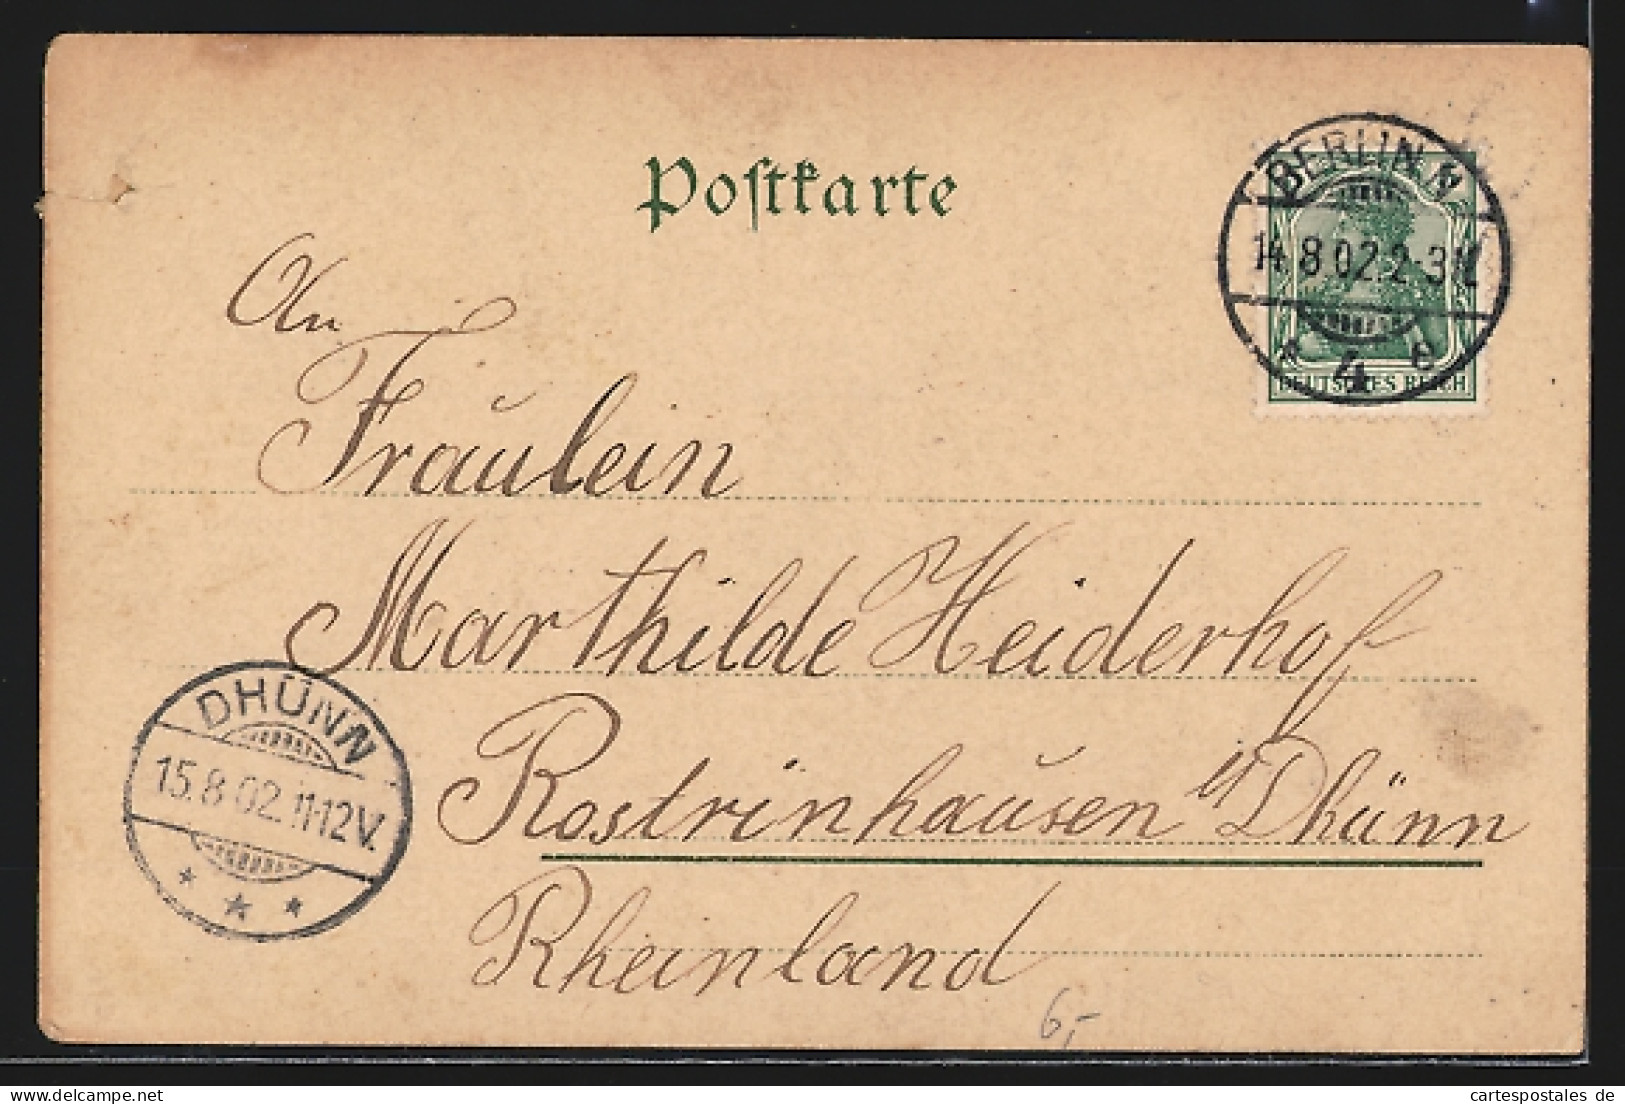 Postkarte
BERLIN N
14.8.02.2-3N
* 4 e
DEUTSCHES REICH
An
Fräulein
Marthilde Heiderhof
Rostrinhausen b/ Dhünn
Rheinland
DHÜNN
15.8.02.11-12V.
* * *
6,-
cartespostales de